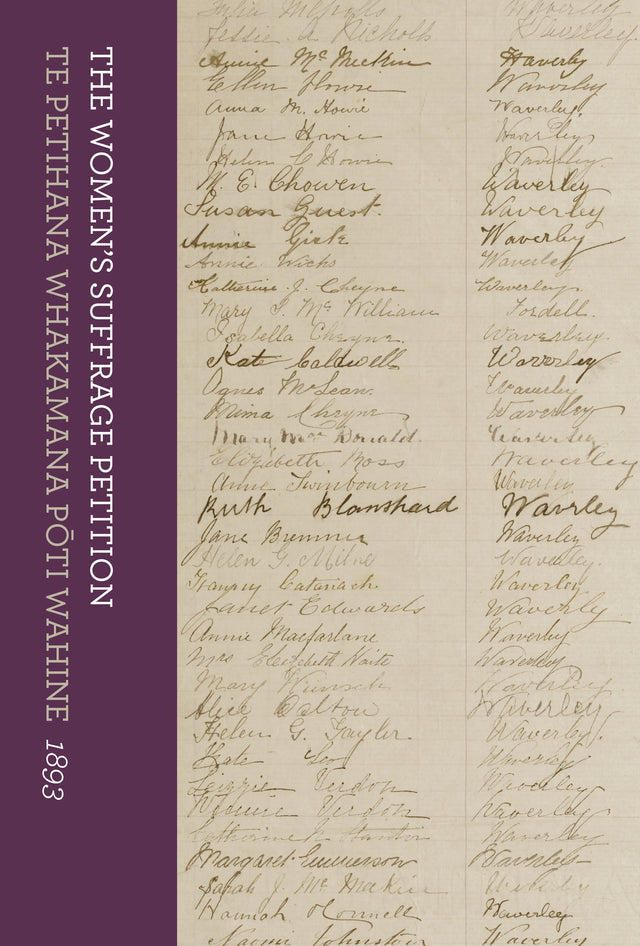 THE WOMEN'S SUFFRAGE PETITION
TE PETIHANA WHAKAMANA PŌTI WAHINE 1893
Waverley
Jessie A Nicholls Waverley.
Annie McMeekin Waverley
Ellen Howie Waverley
Anna M. Howie Waverley.
Jane Howie Waverley
Helen C Howie Waverley.
M. E. Chowen Waverley
Susan Guest. Waverley
Annie Waverley
Annie Wicks Waverley
Katherine J. Cheyne Waverley.
Mary I. McWilliam Fordell.
Isabella Cheyne. Waverley.
Kate Caldwell Waverley
Agnes McLean. Waverley
Mima Cheyne Waverley
Mary MacDonald. Waverley
Elizabeth Ross Waverley
Anne Swinbourn Waverley
Ruth Blanshard Waverley
Jane Bremner Waverley
Helen G. Milne Waverley.
Catanach Waverley
Janet Edwards Waverley
Annie Macfarlane Waverley
Mrs Elizabeth Waite Waverley
Mary Wunsch Waverley
Alice Dalton Waverley
Helen G. Taylor. Waverley.
Kate Waverley
Lizzie Verdon Waverley
Verdon Waverley.
Catherine Waverley
Margaret Gunnerson Waverley
Sarah J. McMeekin Waverley
Hannah Waverley
Naomi Johnston Waverley